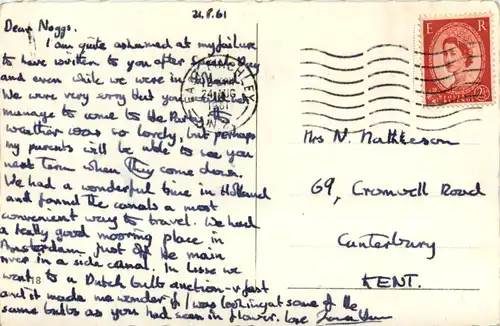 21.8.61
Dear Noggs.
I am quite ashamed at my failure
to have written to you after Speech Day
and even while we were in Holland.
We were very sorry that you couldn't
manage to come to the Party, the
weather was so lovely, but perhaps
my parents will be able to see you
next Term when they come down.
We had a wonderful time in Holland
and found the canals a most
convenient way to travel. We had
a really good mooring place in
Amsterdam just off the main
river in a side canal. In Lisse we
went to a Dutch bulb auction - v fast
and it made me wonder if I was looking at some of the
same bulbs as you had seen in flower. Love
18
FINCHLEY
24 AUG
1961
E R
2½
Mrs N. Matheson
69, Cromwell Road
Canterbury
KENT.